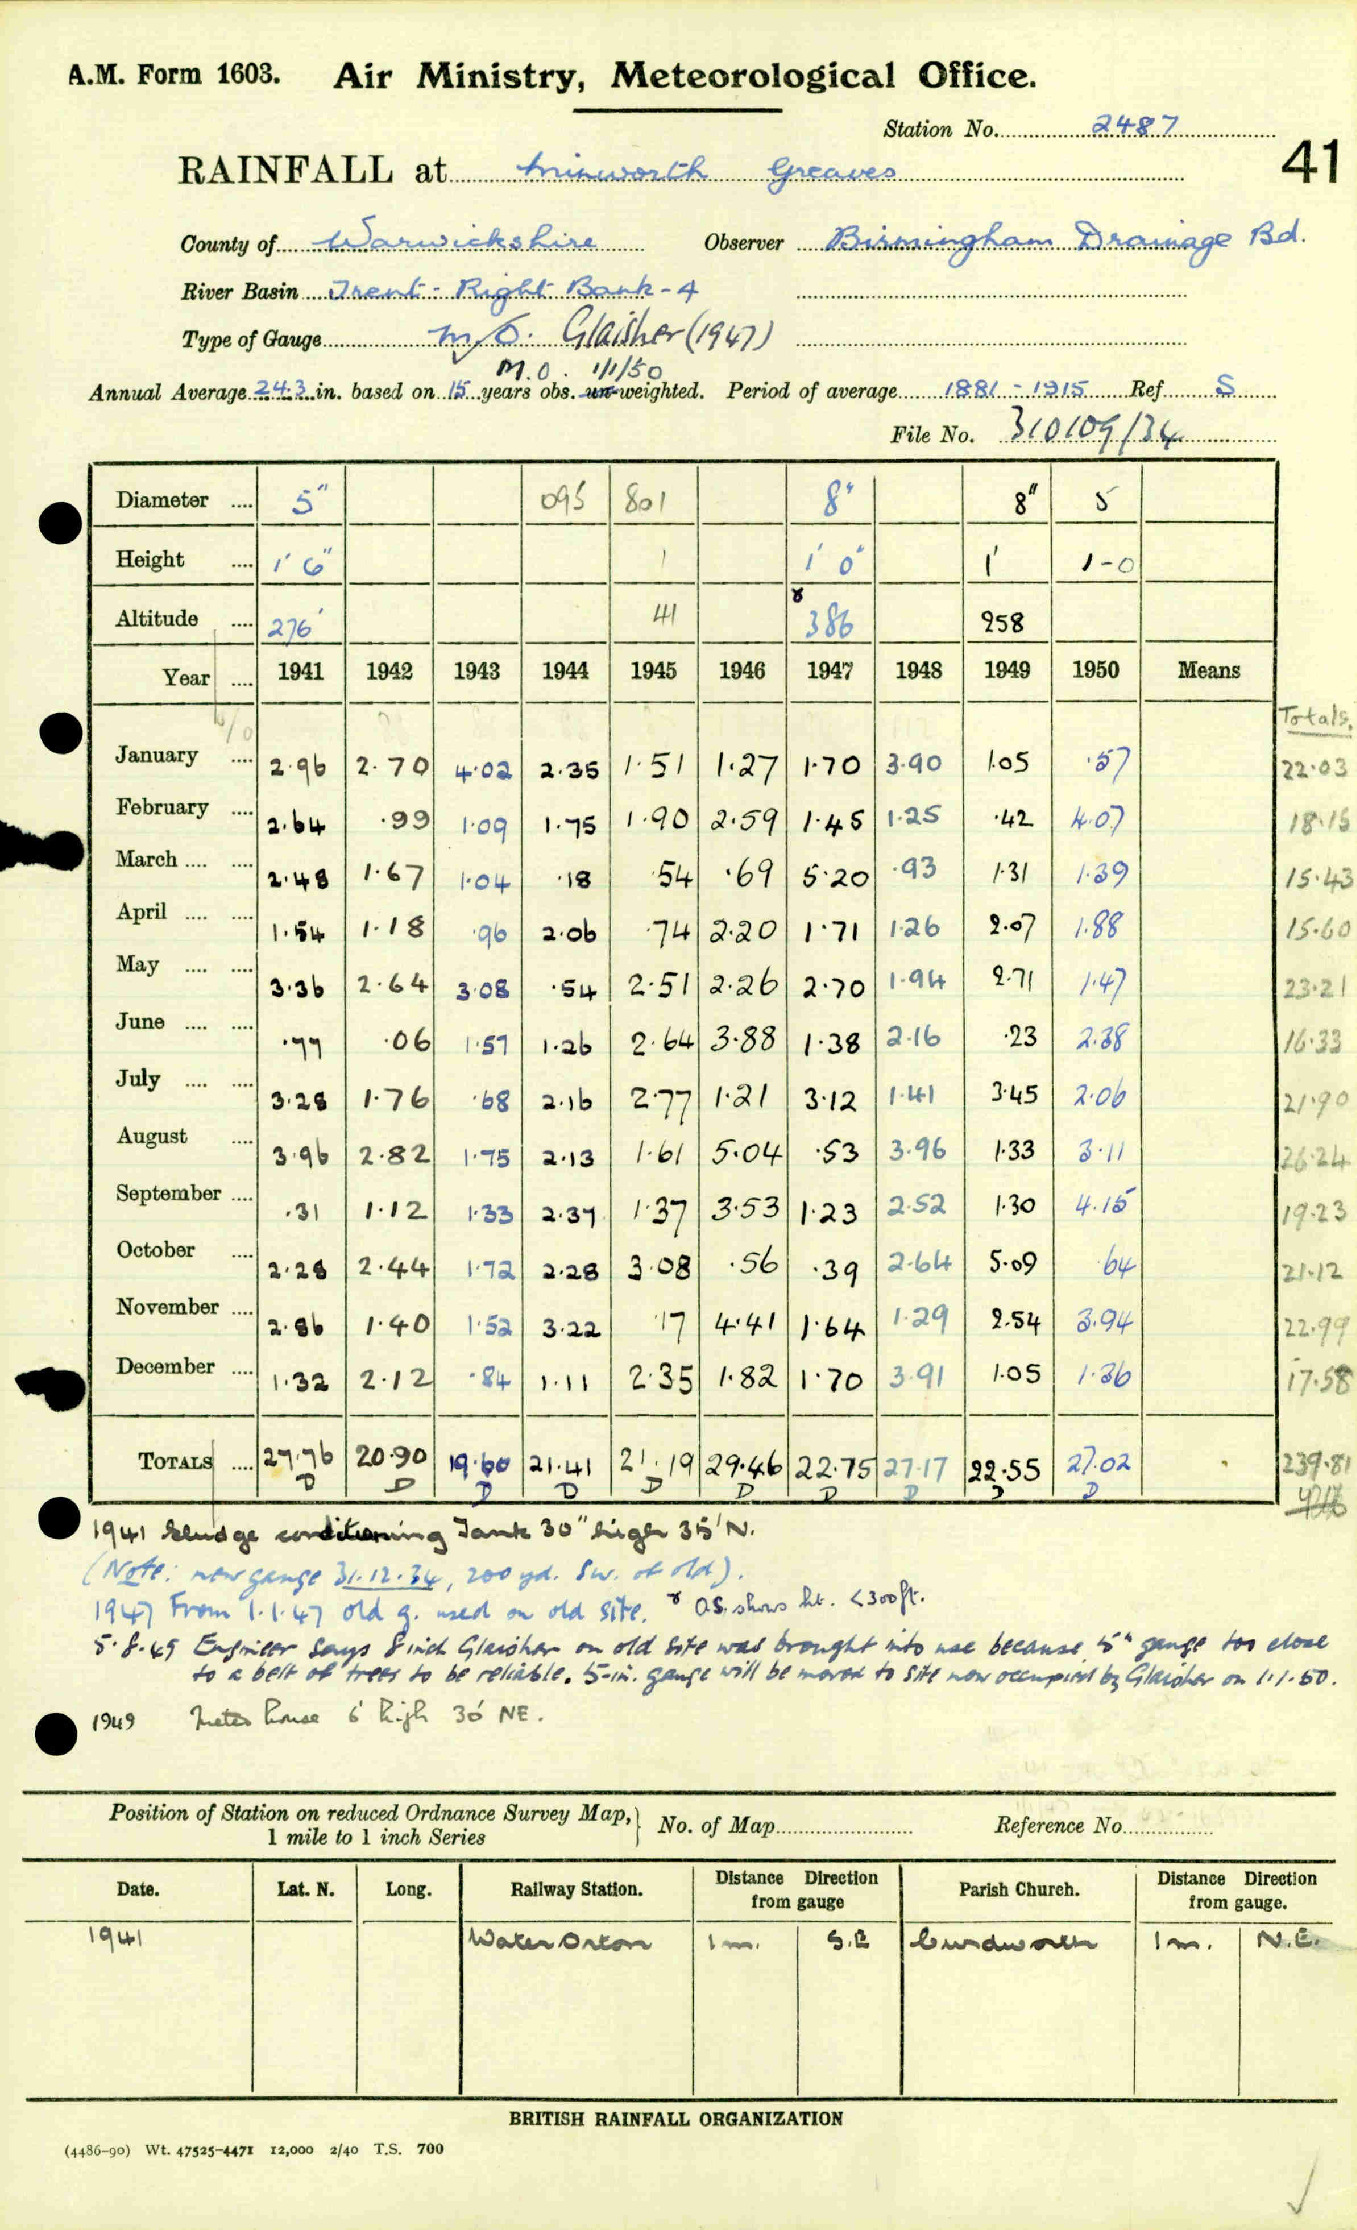 A.M. Form 1603. Air Ministry, Meteorological Office.
Station No. 2487
41
RAINFALL at Minworth Greaves
County of Warwickshire Observer Birmingham Drainage Bd.
River Basin Trent - Right Bank - 4
Type of Gauge M/O. Glaisher (1947)
M.O. 1/1/50
Annual Average 24.3 in. based on 15 years obs. un-weighted. Period of average 1881 - 1915 Ref S
File No. 310109/34
Diameter 5" 095 801 8" 8" 5
Height 1' 6" 1 1' 0" 1' 1-0
Altitude 276' 41 386 258
Year 1941 1942 1943 1944 1945 1946 1947 1948 1949 1950 Means
Totals.
January 2.96 2.70 4.02 2.35 1.51 1.27 1.70 3.90 1.05 .57 22.03
February 2.64 .99 1.09 1.75 1.90 2.59 1.45 1.25 .42 4.07 18.15
March 2.48 1.67 1.04 .18 .54 .69 5.20 .93 1.31 1.39 15.43
April 1.54 1.18 .96 2.06 .74 2.20 1.71 1.26 2.07 1.88 15.60
May 3.36 2.64 3.08 .54 2.51 2.26 2.70 1.94 2.71 1.47 23.21
June .77 .06 1.57 1.26 2.64 3.88 1.38 2.16 .23 2.38 16.33
July 3.28 1.76 .68 2.16 2.77 1.21 3.12 1.41 3.45 2.06 21.90
August 3.96 2.82 1.75 2.13 1.61 5.04 .53 3.96 1.33 3.11 26.24
September .31 1.12 1.33 2.37 1.37 3.53 1.23 2.52 1.30 4.15 19.23
October 2.28 2.44 1.72 2.28 3.08 .56 .39 2.64 5.09 .64 21.12
November 2.86 1.40 1.52 3.22 .17 4.41 1.64 1.29 2.54 3.94 22.99
December 1.32 2.12 .84 1.11 2.35 1.82 1.70 3.91 1.05 1.36 17.58
TOTALS 27.76 20.90 19.60 21.41 21.19 29.46 22.75 27.17 22.55 27.02 239.81
D D D D D D D D D D
1941 Sludge conditioning Tank 30" high 35' N.
(Note: new gauge 31.12.34, 200 yd. SW. of old).
1947 From 1.1.47 old g. used on old site. O.S. shows ht. <300ft.
5.8.49 Engineer says 8 inch Glaisher on old site was brought into use because 5" gauge too close
to a belt of trees to be reliable. 5-in. gauge will be moved to site now occupied by Glaisher on 1.1.50.
1949 Meter house 6' high 36' NE.
Position of Station on reduced Ordnance Survey Map, No. of Map Reference No.
1 mile to 1 inch Series
Date. Lat. N. Long. Railway Station. Distance Direction from gauge Parish Church. Distance Direction from gauge.
1941 Water Orton 1m. S.E Curdworth 1m. N.E.
BRITISH RAINFALL ORGANIZATION
(4486-90) Wt. 47525-4471 12,000 2/40 T.S. 700